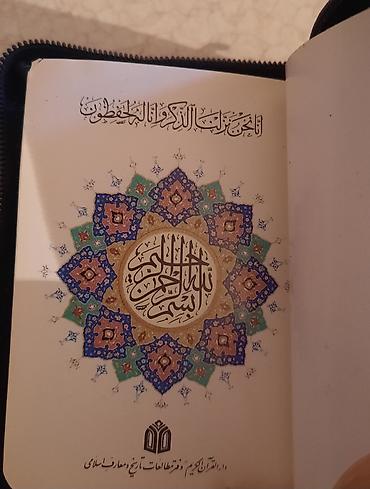 إنا نحن نزلنا الذكر وإنا له لحافظون
بسم الله الرحمن الرحيم
دار القرآن الكریم "دفتر مطالعات تاریخ و معارف اسلامی